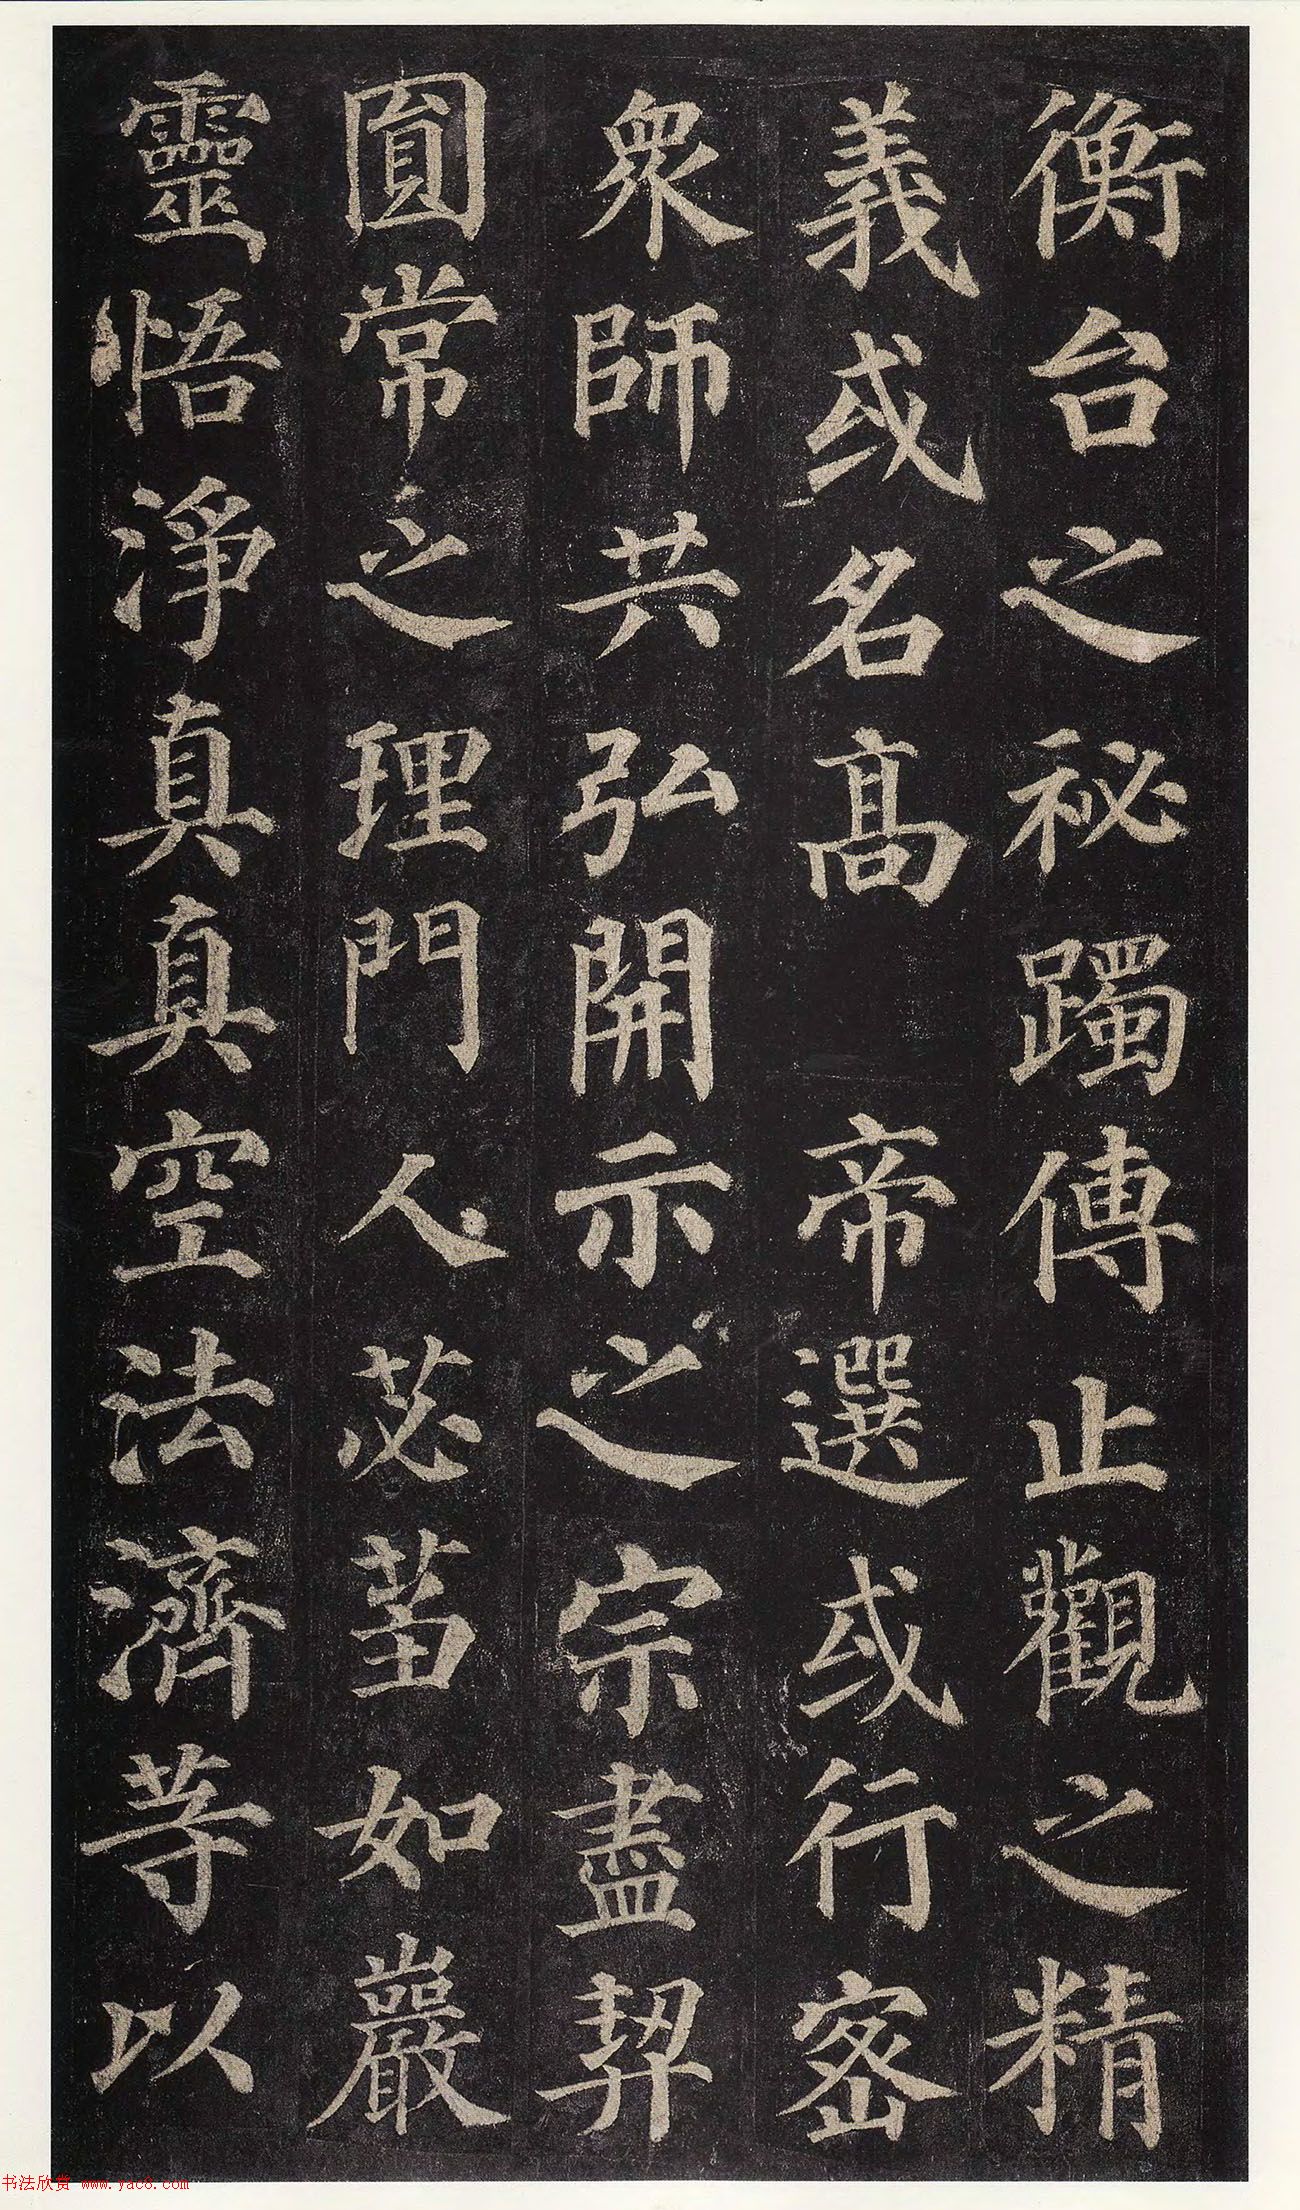 衡台之秘躅傳止觀之精
義或名高 帝選或行密
衆師共弘開示之宗盡契
圓常之理門人苾蒭如巖
靈悟淨真真空法濟等以
书法欣赏 www.yac8.com